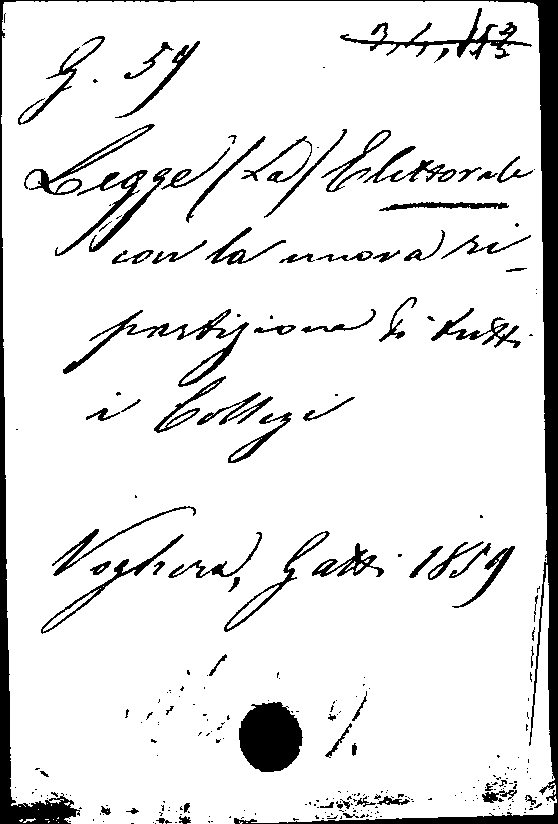 G. 59
Legge (La) Elettorale
con la nuova ri-
partizione di tutti
i Collegi
Voghera, Gatti 1859